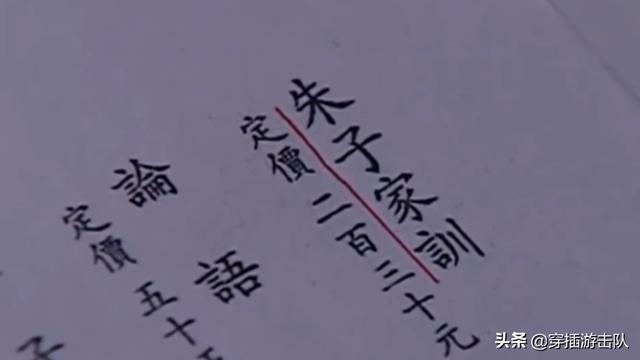 朱子家訓
定價二百三十元
論語
定價五十
子
头条 @穿插游击队